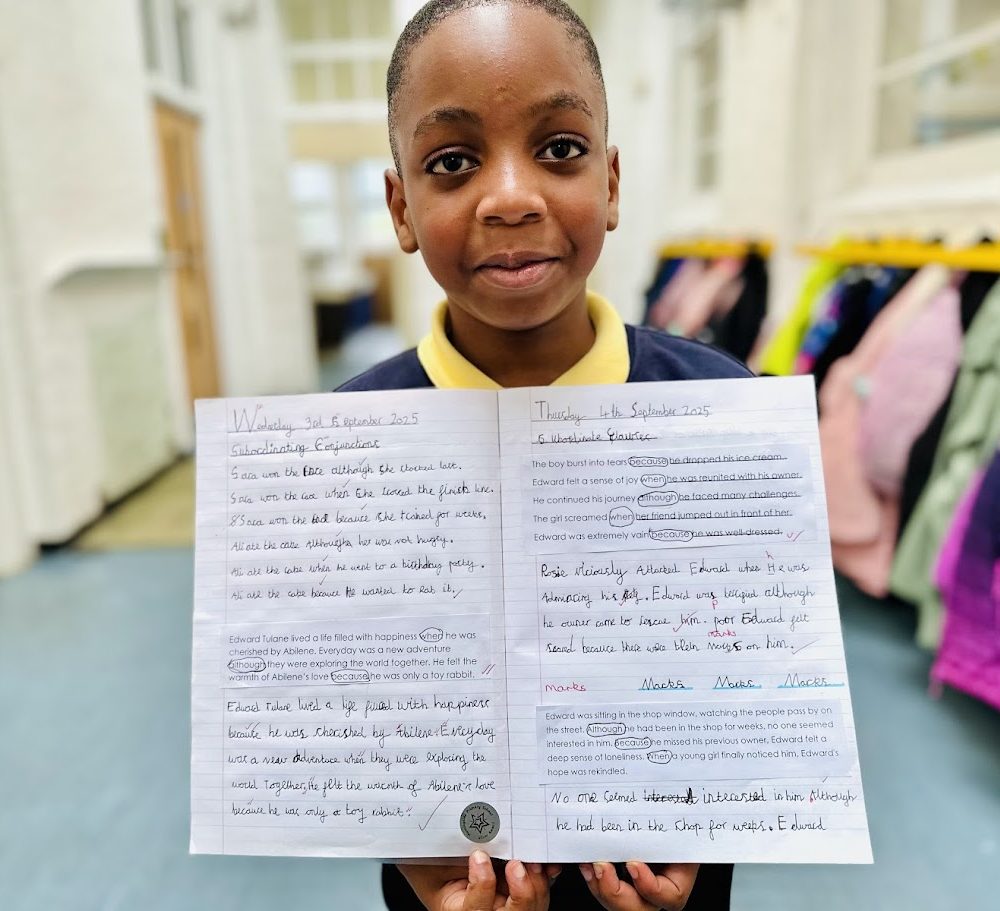 Wednesday 3rd September 2025
Subordinating Conjunctions
Sara won the race although she clocked late.
Sara won the race when she crossed the finish line.
Sara won the race because she trained for weeks.
Ali ate the cake Although her was not hugry.
Ali ate the cake when he went to a birthday party.
Ali ate the cake because He wanted to eat it.
Edward Tulane lived a life filled with happiness when he was
cherished by Abilene. Everyday was a new adventure
although they were exploring the world together. He felt the
warmth of Abilene's love because he was only a toy rabbit.
Edward Tulane lived a life filled with happiness
because he was cherished by Abilene. Everyday
was a new adventure when they were exploring the
world Together, He felt the warmth of Abilene's love
because he was only a toy rabbit.
Thursday 4th September 2025
Subordinate Clauses
The boy burst into tears because he dropped his ice cream.
Edward felt a sense of joy when he was reunited with his owner.
He continued his journey although he faced many challenges.
The girl screamed when her friend jumped out in front of her.
Edward was extremely vain because he was well-dressed.
h
Rosie viciously Attacked Edward when He was
Admiring his. Edward was although
p
he owner came to rescue him. poor Edward felt
marks
scared because there were on him.
marks Marks Marks Marks
Edward was sitting in the shop window, watching the people pass by on
the street. Although he had been in the shop for weeks, no one seemed
interested in him, because he missed his previous owner. Edward felt a
deep sense of loneliness. When a young girl finally noticed him, Edward's
hope was rekindled.
No one Seemed interested in him Although
he had been in the shop for weeks. Edward